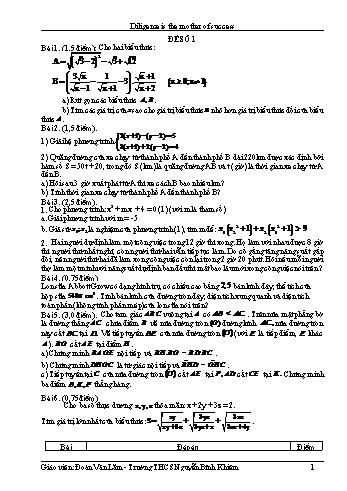 Diligence is the mother of success
ĐỀ SỐ 1
Bài 1. (1,5 điểm): Cho hai biểu thức:
A = √(√3 − 2)² − √3 + √12
B = (3√x/(√x − 1) − 1/(√x + 1) − 3) · (√x + 1)/(√x + 2) (x ≥ 0; x ≠ 1)
a) Rút gọn các biểu thức A, B.
b) Tìm các giá trị của x sao cho giá trị biểu thức B nhỏ hơn giá trị biểu thức đối của biểu
thức A.
Bài 2. (1,5 điểm).
1) Giải hệ phương trình
2) Quãng đường của xe chạy từ thành phố A đến thành phố B dài 220km được xác định bởi
hàm số S = 50t + 20, trong đó S (km) là quãng đường AB và t (giờ) là thời gian xe chạy từ A
đến B.
a) Hỏi sau 3 giờ xuất phát từ A thì xe cách B bao nhiêu km?
b) Tính thời gian xe chạy từ thành phố A đến thành phố B?
Bài 3. (2,5 điểm).
1. Cho phương trình: x² + mx + 4 = 0 (1) (với m là tham số)
a. Giải phương trình với m = - 5
b. Giả sử x₁, x₂ là nghiệm của phương trình (1), tìm m để: x₁(x₁² + 1) + x₂(x₂² + 1) > 9
2. Hai người dự định làm một công việc trong 12 giờ thì xong. Họ làm với nhau được 8 giờ
thì người thứ nhất nghỉ, còn người thứ hai vẫn tiếp tục làm. Do cố gắng tăng năng suất gấp
đôi, nên người thứ hai đã làm xong công việc còn lại trong 2 giờ 20 phút. Hỏi nếu mỗi người
thợ làm một mình với năng suất dự định ban đầu thì mất bao lâu mới xong công việc nói trên?
Bài 4. (0,75 điểm).
có chiều cao bằng 2,5 bán kính đáy, thể tích của
hộp sữa
toàn phần (không tính phần mép) vỏ lon sữa nói trên?
Bài 5. (3,0 điểm). Cho tam giác ABC vuông tại A có AB < AC. Trên nửa mặt phẳng bờ
là đường thẳng AC chứa điểm B vẽ nửa đường tròn (O) đường kính AC, nửa đường tròn
này cắt BC tại D. Vẽ tiếp tuyến BE của nửa đường tròn (O) (với E là tiếp điểm, E khác
A). BO cắt AE tại điểm H.
a) Chứng minh BAOE nội tiếp và BH.BO = BD.BC.
b) Chứng minh DHOC là tứ giác nội tiếp và
c) Tiếp tuyến tại C của nửa đường tròn (O) cắt AE tại F, AD cắt CE tại K. Chứng minh
ba điểm B, K, F thẳng hàng.
Bài 6. (0,75 điểm)
Cho ba số thực dương x, y, z thỏa mãn: x + 2y + 3z = 2.
Tìm giá trị lớn nhất của biểu thức: S =
Bài Đáp án Điểm
Giáo viên: Đoàn Văn Lâm - Trường THCS Nguyễn Bỉnh Khiêm 1